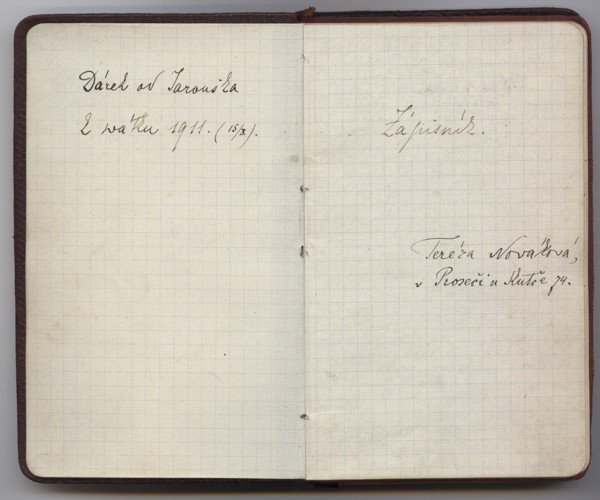 Dárek od Jarouška
k svátku 1911. (15/X).
Zápisník.
Teréza Nováková,
v Proseči u Skutče 74.